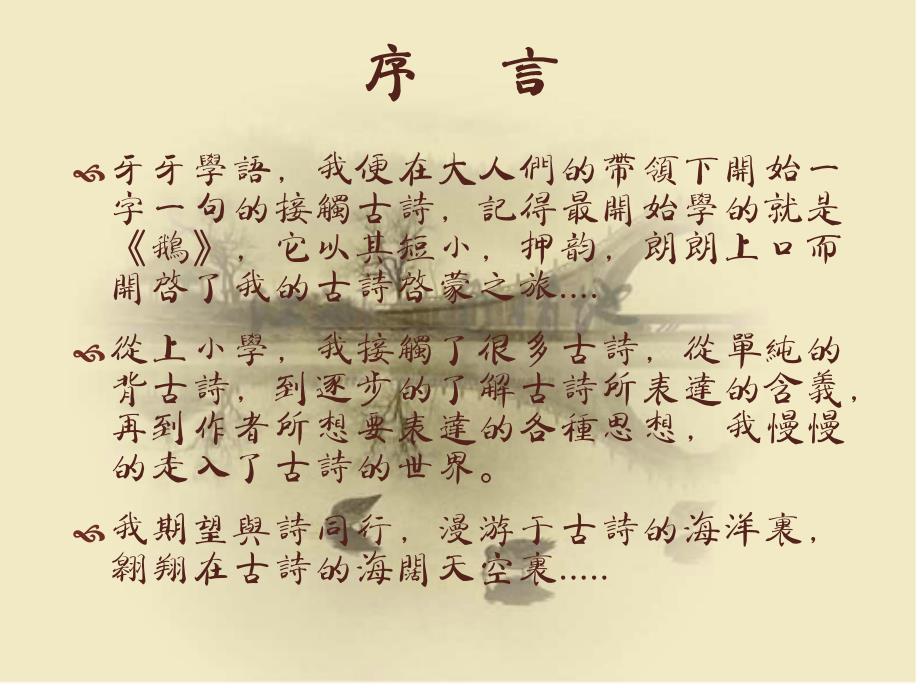 序 言
牙牙學語，我便在大人們的帶領下開始一
字一句的接觸古詩，記得最開始學的就是
《鵝》，它以其短小，押韵，朗朗上口而
開啓了我的古詩啓蒙之旅....
從上小學，我接觸了很多古詩，從單純的
背古詩，到逐步的了解古詩所表達的含義，
再到作者所想要表達的各種思想，我慢慢
的走入了古詩的世界。
我期望與詩同行，漫游于古詩的海洋裏，
翱翔在古詩的海闊天空裏.....